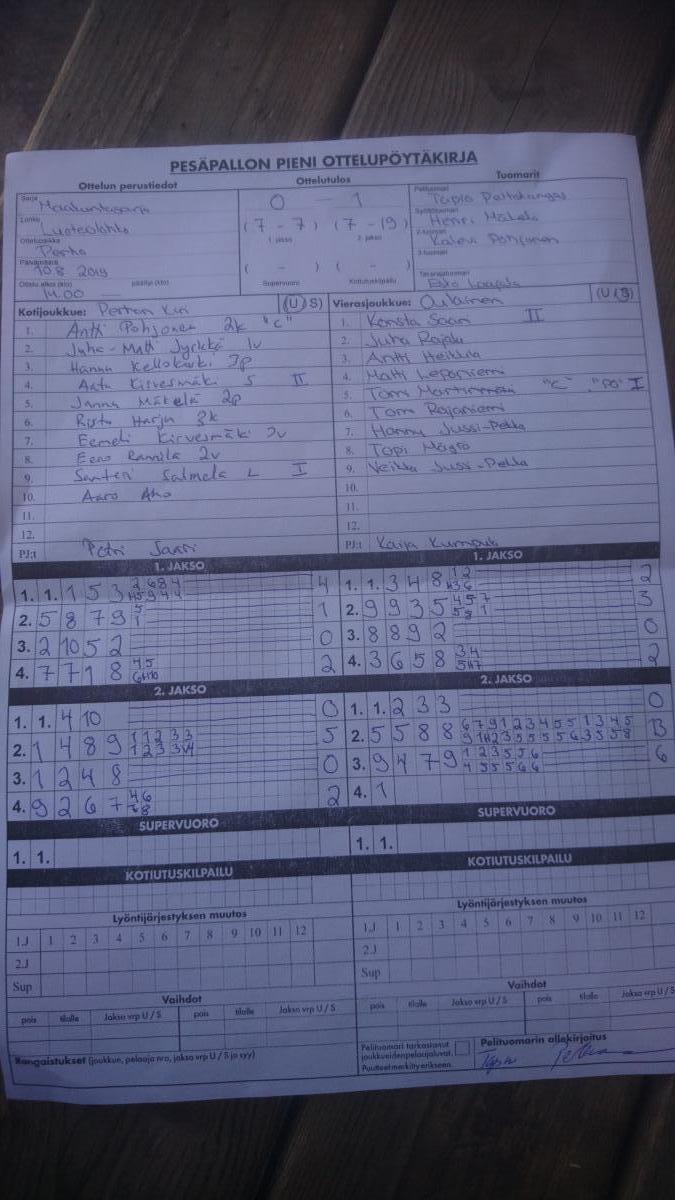 PESÄPALLON PIENI OTTELUPÖYTÄKIRJA
Ottelun perustiedot Ottelutulos Tuomarit
Sarja Maakuntasarja
Lohko Luoteislohko
Ottelupaikka Perho
Päivämäärä 10.8 2019
Ottelu alkoi (klo) 14.00 päättyi (klo)
0 - 1
(7 - 7) (7 - 19)
1. jakso 2. jakso
( - ) ( - )
Supervuoro Kotiutuskilpailu
Pelituomari Tapio
Syöttötuomari Henri Mäkelä
2-tuomari Kalevi Pohjonen
3-tuomari
Takarajatuomari Esko
Kotijoukkue: Perhon Kiri (U/S)
1. Antti Pohjonen 2k "C"
2. Juha-Matti Jyrkkä lv
3. Hannu Kellokoski 3p
4. Aatu Kirvesmäki S II
5. Janne Mäkelä 2p
6. Risto Harju 3k
7. Eemeli Kirvesmäki 3v
8. Eero Rannila 2v
9. Santeri Salmela L I
10. Aaro Aho
11.
12.
PJ:t Petri Saari
Vierasjoukkue: Oulainen (U/S)
1. Konsta Saari II
2. Juha Rajala
3. Antti Heikkilä
4. Matti Leporiemi
5. Tomi "C" I
6. Tomi Rajaniemi
7. Hannu Jussi-Pekka
8. Topi
9. Veikka Jussi-Pekka
10.
11.
12.
PJ:t Kaija
1. JAKSO
1. 1. 1 5 3 4
2. 5 8 7 9 5 1 1
3. 2 10 5 2 0
4. 7 7 1 8 2
1. JAKSO
1. 1. 3 4 8 2
2. 9 9 3 5 3
3. 8 8 9 2 0
4. 3 6 5 8 2
2. JAKSO
1. 1. 4 10 0
2. 1 4 8 9 5
3. 1 2 4 8 0
4. 9 2 6 7 2
2. JAKSO
1. 1. 2 3 3 0
2. 5 5 8 8 13
3. 9 4 7 9 6
4. 1
SUPERVUORO
1. 1.
SUPERVUORO
1. 1.
KOTIUTUSKILPAILU
KOTIUTUSKILPAILU
Lyöntijärjestyksen muutos
1.J 1 2 3 4 5 6 7 8 9 10 11 12
2.J
Sup
Lyöntijärjestyksen muutos
1.J 1 2 3 4 5 6 7 8 9 10 11 12
2.J
Sup
Vaihdot
pois tilalle Jakso vrp U / S pois tilalle Jakso vrp U / S
Vaihdot
pois tilalle Jakso vrp U / S pois tilalle Jakso vrp U / S
Rangaistukset (joukkue, pelaaja nro, jakso vrp U / S ja syy)
Pelituomari tarkastanut
joukkueiden pelaajaluvat.
Puutteet merkitty erikseen.
Pelituomarin allekirjoitus